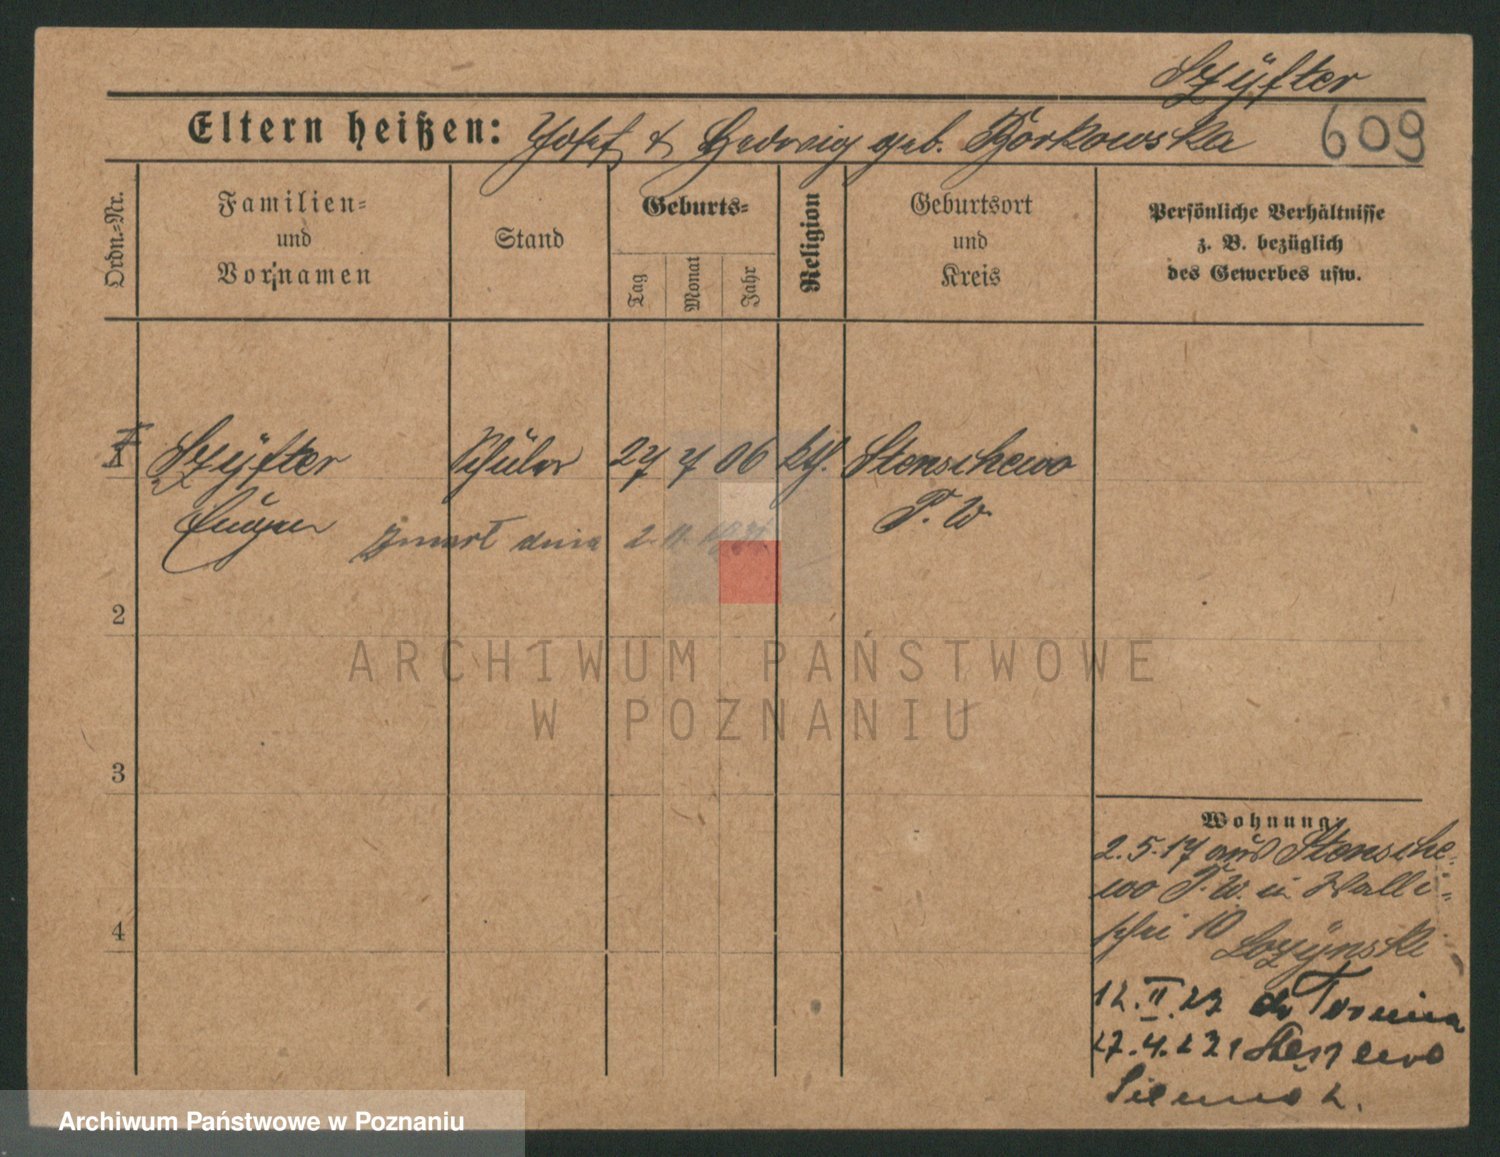 Szÿfter
Eltern heißen: Josef & Hedwig geb. Borkowska 609
Ordn.-Nr.
Familien-
und
Vornamen
Stand
Geburts-
Tag
Monat
Jahr
Religion
Geburtsort
und
Kreis
Persönliche Verhältnisse
z. B. bezüglich
des Gewerbes usw.
Szÿfter Schüler 27 7 06 kth. Stenschewo
Eugen P. W.
zmarł dnia 2. 11.
2
3
4
Wohnung:
2.5.17 aus Stensche-
wo P. W. in Walli-
schei 10
12. II. 23 do Torunia
27. 4. 23 Stęszewo
ARCHIWUM PAŃSTWOWE
W POZNANIU
Archiwum Państwowe w Poznaniu